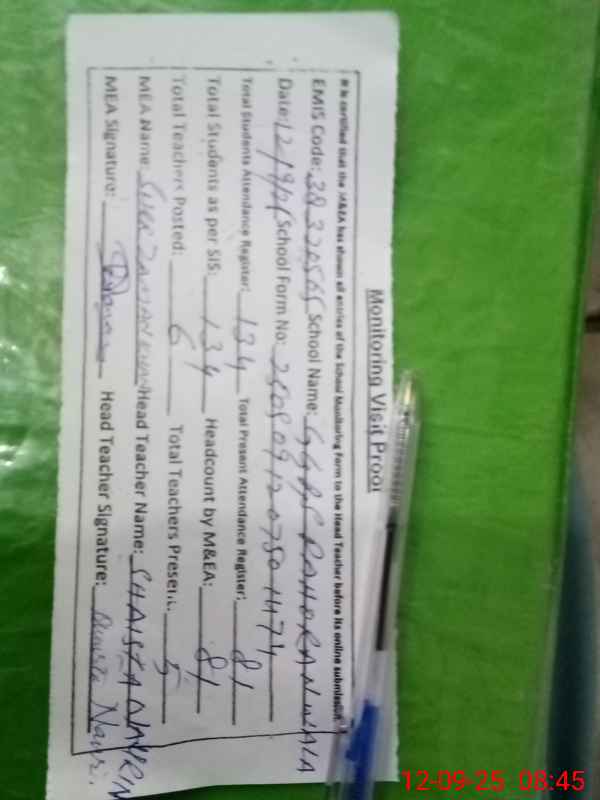 Monitoring Visit Proof
It is certified that the M&EA has shown all entries of the School Monitoring Form to the Head Teacher before its online submission.
EMIS Code: 38320565 School Name: GGPS RAHORANWALA
Date: 12/9/25 School Form No:
Total Students Attendance Register: 134 Total Present Attendance Register: 81
Total Students as per SIS: 134 Headcount by M&EA: 81
Total Teachers Posted: 6 Total Teachers Present: 5
MEA Name: Head Teacher Name: SHAISTA NAVRIN
MEA Signature: Head Teacher Signature:
12-09-25 08:45